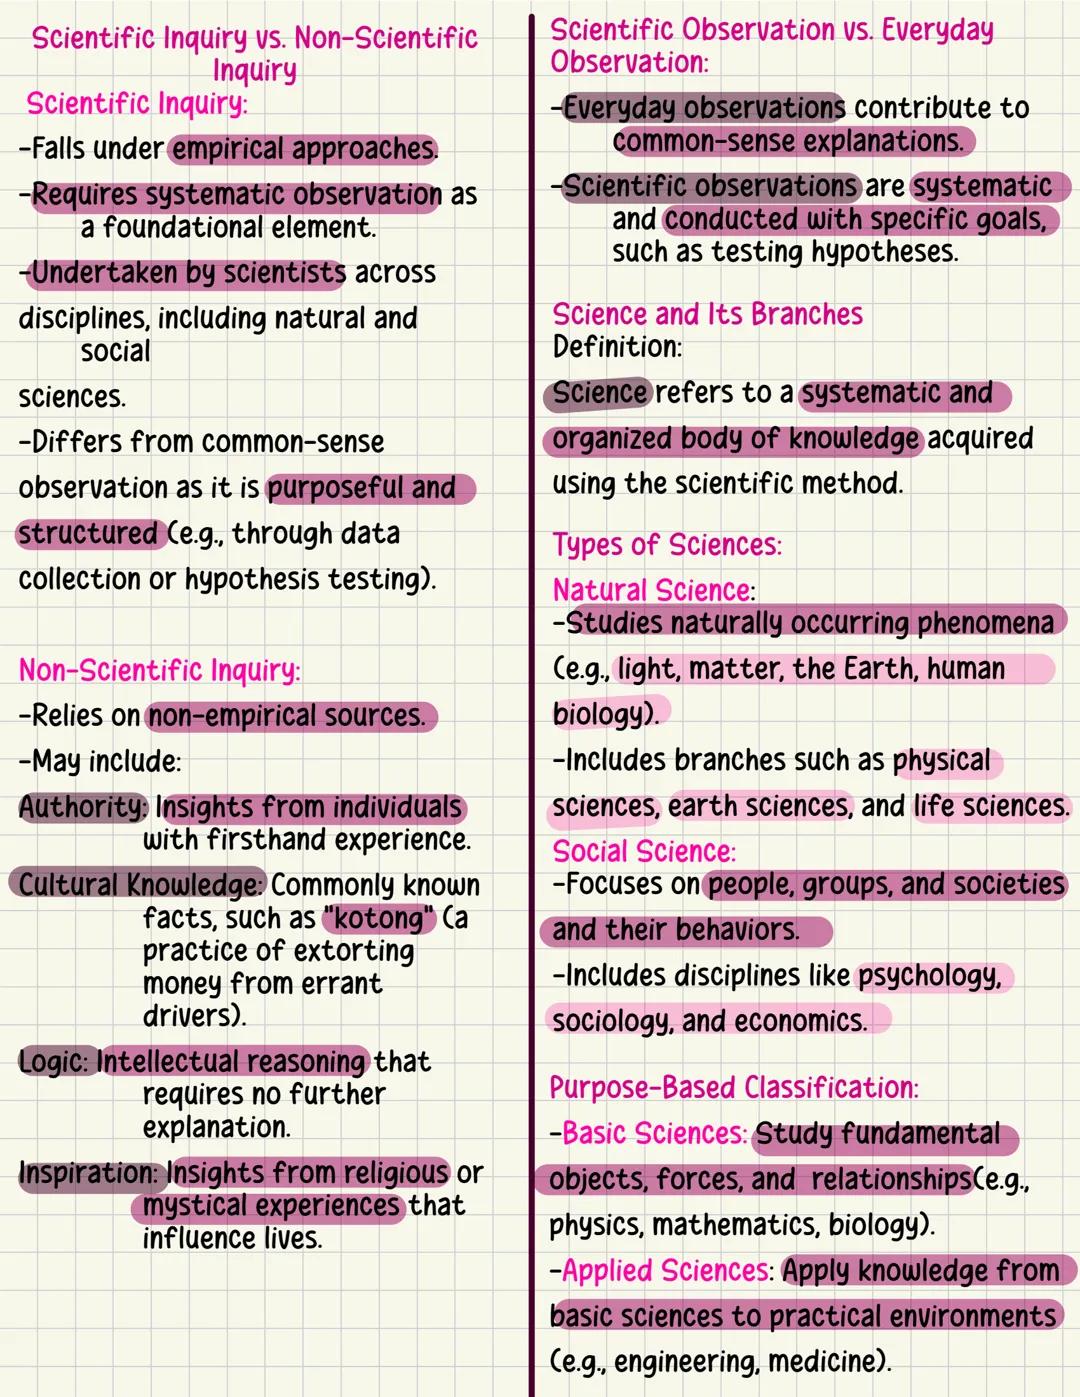 Scientific Inquiry vs. Non-Scientific
Inquiry
Scientific Inquiry:
-Falls under empirical approaches.
-Requires systematic observation as
a foundational element.
-Undertaken by scientists across
disciplines, including natural and
social
sciences.
-Differs from common-sense
observation as it is purposeful and
structured (e.g., through data
collection or hypothesis testing).
Non-Scientific Inquiry:
-Relies on non-empirical sources.
-May include:
Authority: Insights from individuals
with firsthand experience.
Cultural Knowledge: Commonly known
facts, such as "kotong" (a
practice of extorting
money from errant
drivers).
Logic: Intellectual reasoning that
requires no further
explanation.
Inspiration: Insights from religious or
mystical experiences that
influence lives.
Scientific Observation vs. Everyday
Observation:
-Everyday observations contribute to
common-sense explanations.
-Scientific observations are systematic
and conducted with specific goals,
such as testing hypotheses.
Science and Its Branches
Definition:
Science refers to a systematic and
organized body of knowledge acquired
using the scientific method.
Types of Sciences:
Natural Science:
-Studies naturally occurring phenomena
(e.g., light, matter, the Earth, human
biology).
-Includes branches such as physical
sciences, earth sciences, and life sciences.
Social Science:
-Focuses on people, groups, and societies
and their behaviors.
-Includes disciplines like psychology,
sociology, and economics.
Purpose-Based Classification:
-Basic Sciences: Study fundamental
objects, forces, and relationships(e.g.,
physics, mathematics, biology).
-Applied Sciences: Apply knowledge from
basic sciences to practical environments
(e.g., engineering, medicine).